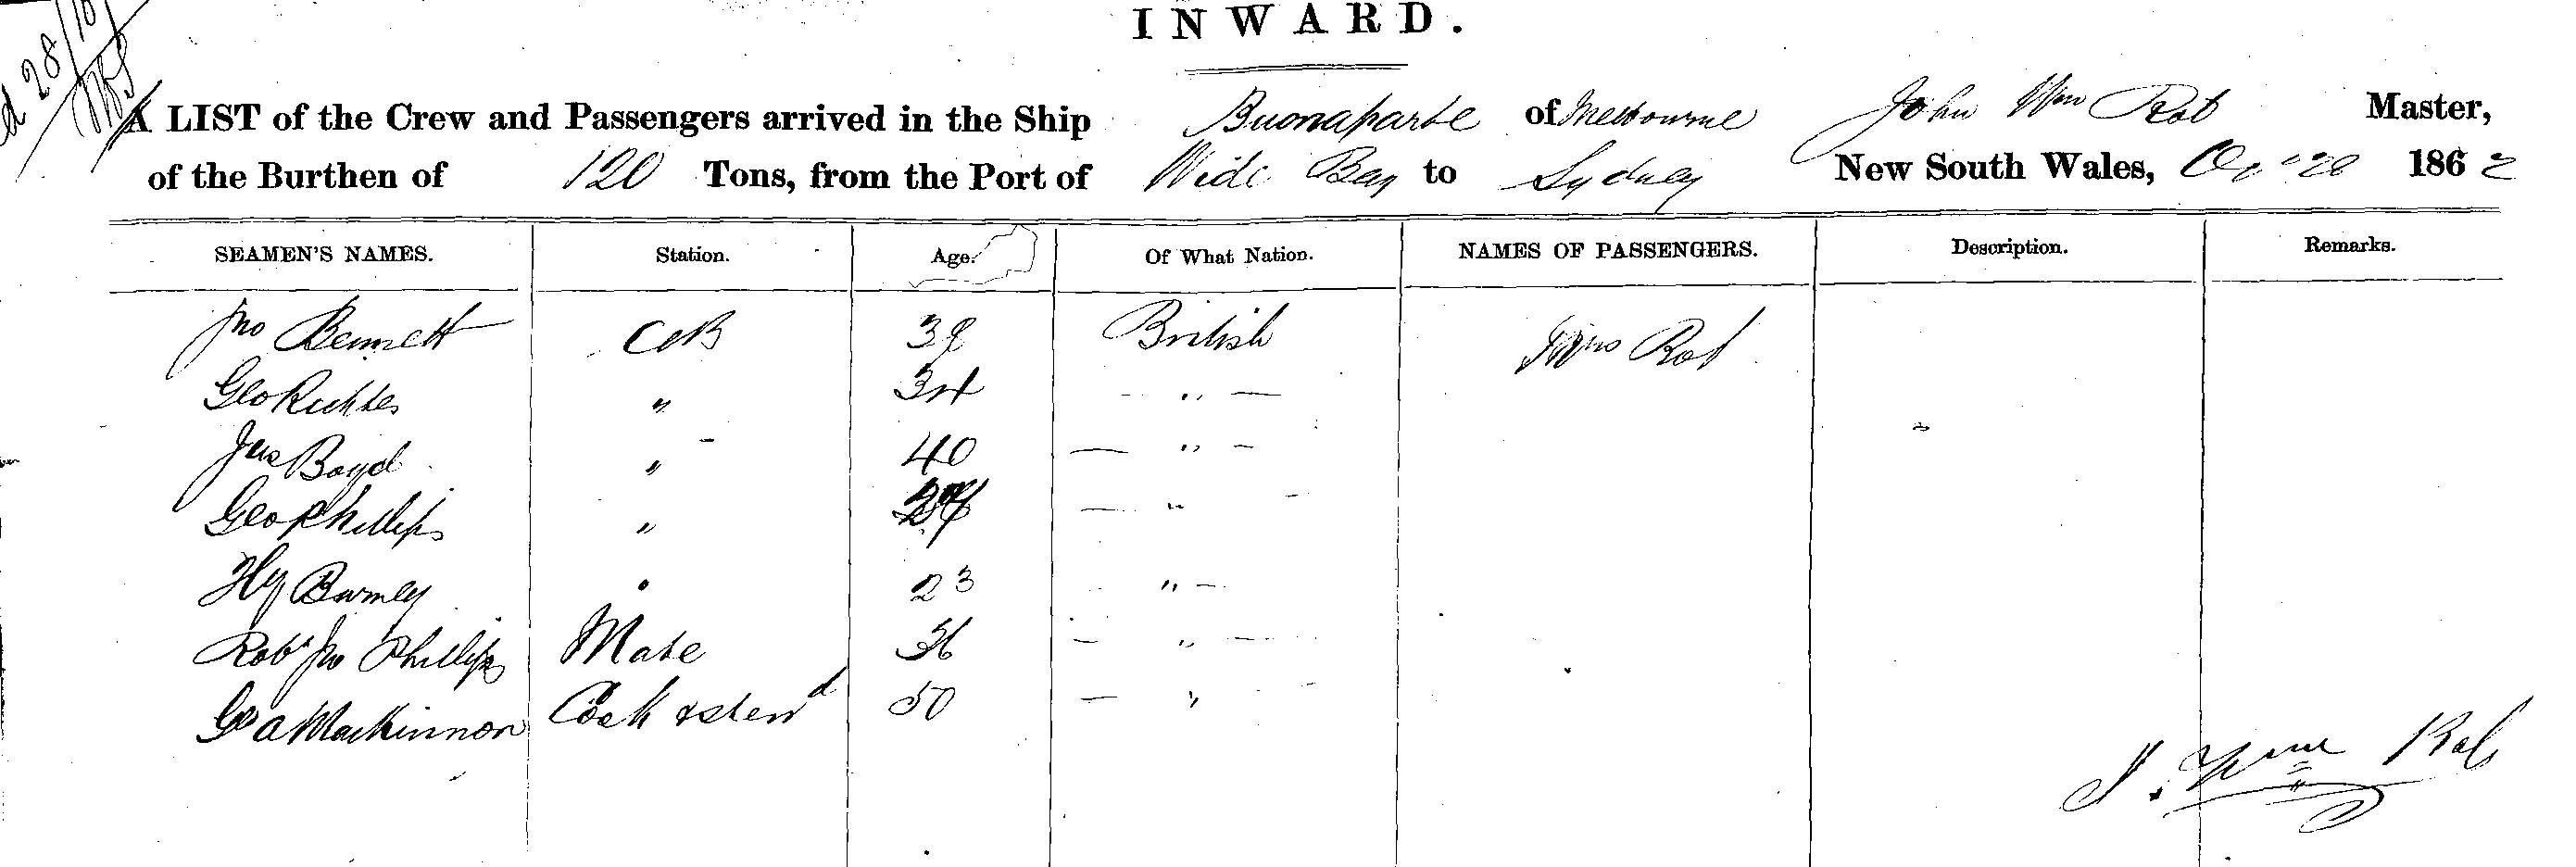 INWARD.
28/10
A LIST of the Crew and Passengers arrived in the Ship Buonaparte of Melbourne John Wm Rob Master,
of the Burthen of 120 Tons, from the Port of Wide Bay to Sydney New South Wales, 28 1862
SEAMEN'S NAMES. Station. Age. Of What Nation. NAMES OF PASSENGERS. Description. Remarks.
Jno Bennett AB 38 British Rob
Geo " 34 "
Jas Boyd " 40 "
Geo Phillips " "
Hy Burney 23 "
Robt Jno Phillips Mate 36 "
Geo A Mackinnon Cook & Stewd 50 "
J. Wm Rob